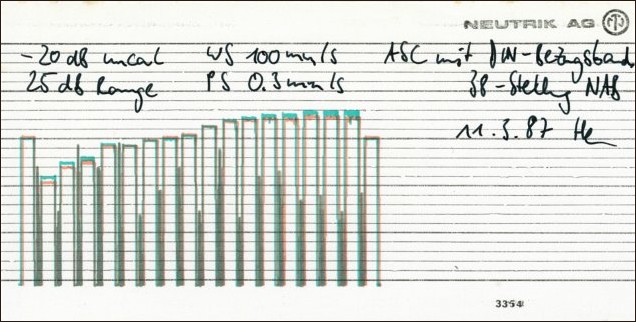 NEUTRIK AG
-20 dB uncal WS 100 mm/s ASC mit DIN-Bezugsband
25 dB Range PS 0.3 mm/s 38-Stellung NAB
11.3.87 He
3354